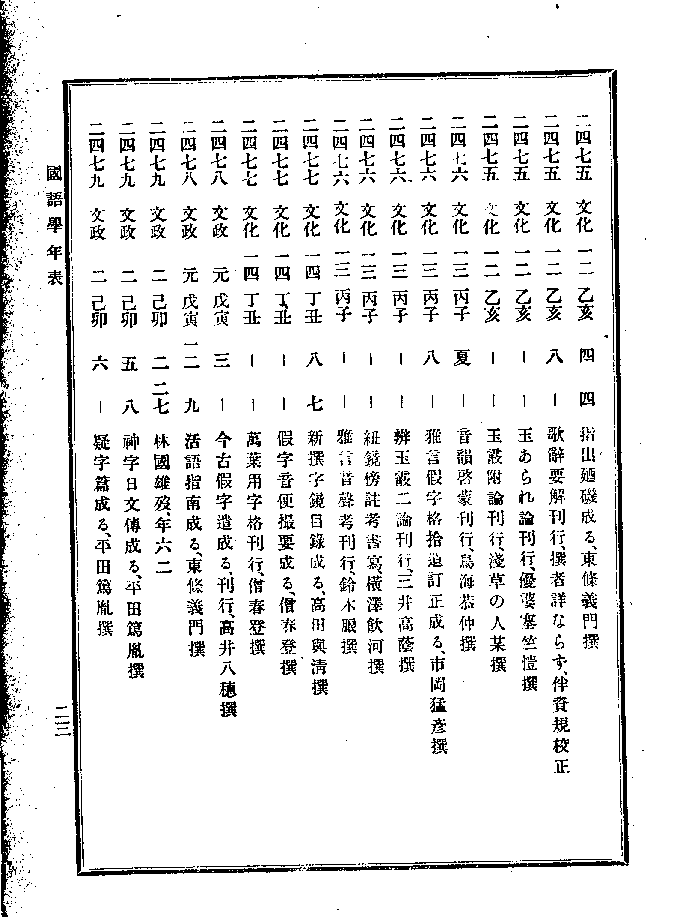 二四七五 文化 一二 乙亥 四 四 指出廼磯成る、東條義門撰
二四七五 文化 一二 乙亥 八 ー 歌辭要解刊行、撰者詳ならず、伴資規校正
二四七五 文化 一二 乙亥 ー ー 玉あられ論刊行、優婆塞竺愷撰
二四七五 文化 一二 乙亥 ー ー 玉霰附論刊行、淺草の人某撰
二四七六 文化 一三 丙子 夏 音韻啓蒙刊行、鳥海恭仲撰
二四七六 文化 一三 丙子 八 ー 雅言假字格拾遺訂正成る、市岡猛彦撰
二四七六 文化 一三 丙子 ー ー 辨玉霰二論刊行、三井高蔭撰
二四七六 文化 一三 丙子 ー ー 紐鏡傍註考書寫、橫澤飮河撰
二四七六 文化 一三 丙子 ー ー 雅言音聲考刊行、鈴木朖撰
二四七七 文化 一四 丁丑 八 七 新撰字鏡目錄成る、高田與淸撰
二四七七 文化 一四 丁丑 ー ー 假字音便撮要成る、僧春登撰
二四七七 文化 一四 丁丑 ー ー 萬葉用字格刊行、僧春登撰
二四七八 文政 元 戊寅 三 ー 今古假字遣成る、刊行、高井八穗撰
二四七八 文政 元 戊寅 一二 九 活語指南成る、東條義門撰
二四七九 文政 二 己卯 二 二七 林國雄歿、年六二
二四七九 文政 二 己卯 五 八 神字日文傳成る、平田篤胤撰
二四七九 文政 二 己卯 六 ー 疑字篇成る、平田篤胤撰
國語學年表
二三